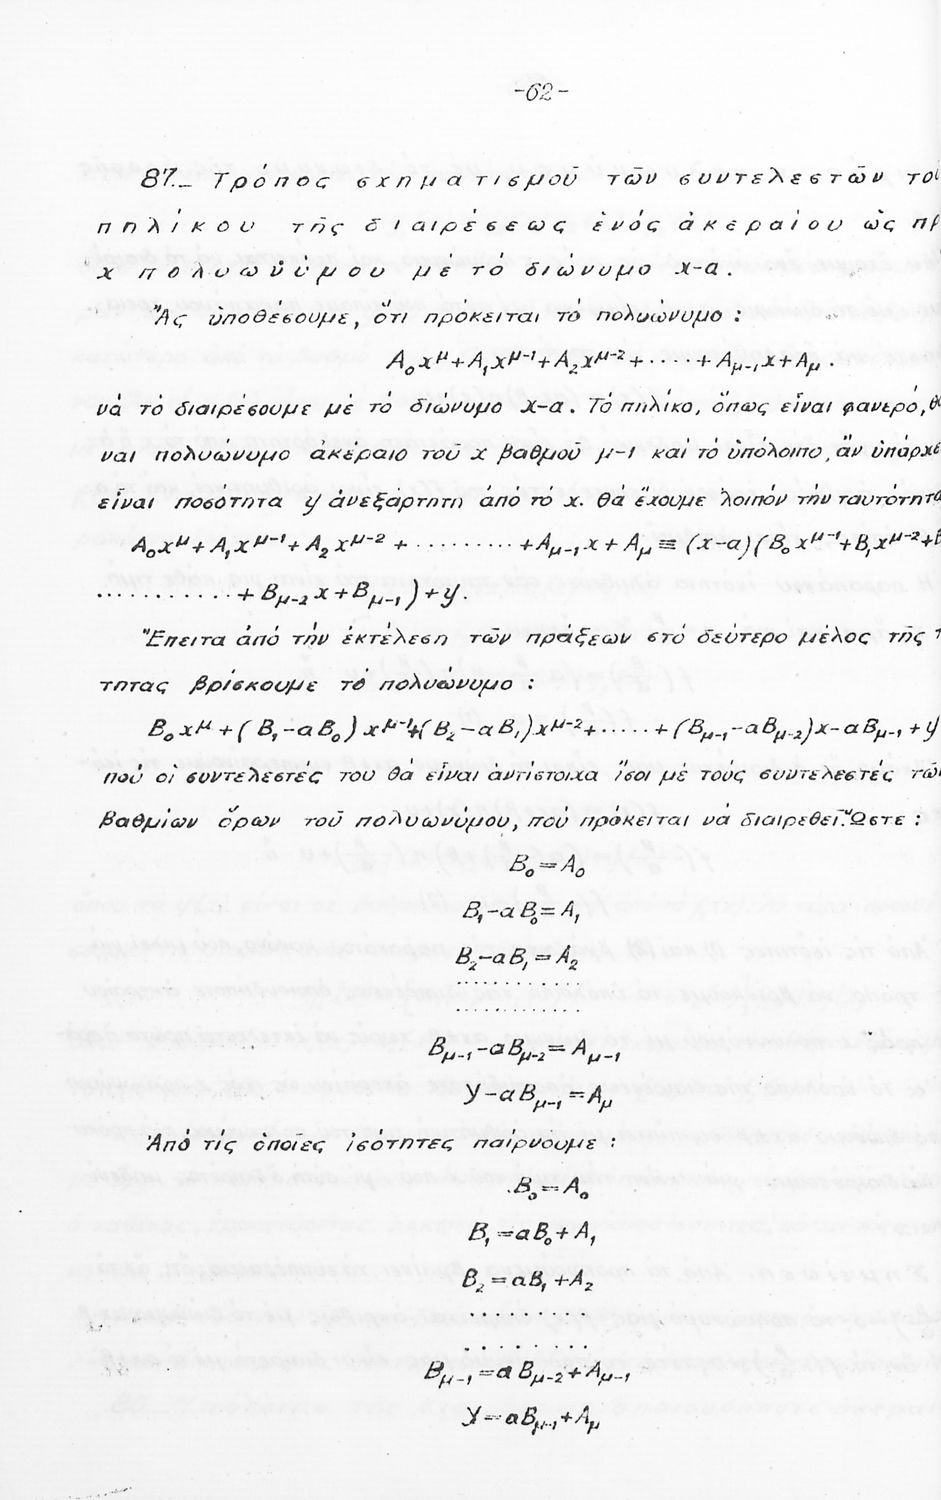 -62-
87.- Τρόπος σχηματισμοῦ τῶν συντελεστῶν το
πηλίκου τῆς διαιρέσεως ἑνός ἀκεραίου ὡς πρ
x πολυωνύμου μέ τό διώνυμο x-a.
Ἄς ὑποθέσουμε, ὅτι πρόκειται τό πολυώνυμο :
A₀x^μ+A₁x^μ-1+A₂x^μ-2+·····+A_μ-1x+A_μ.
νά τό διαιρέσουμε μέ τό διώνυμο x-a. Τό πηλίκο, ὅπως εἶναι φανερό, θ
ναι πολυώνυμο ἀκέραιο τοῦ x βαθμοῦ μ-1 καί τό ὑπόλοιπο, ἄν ὑπάρχε
εἶναι ποσότητα y ἀνεξάρτητη ἀπό τό x. Θά ἔχουμε λοιπόν τήν ταυτότητα
A₀x^μ+A₁x^μ-1+A₂x^μ-2+··········+A_μ-1x+A_μ≡(x-a)(B₀x^μ-1+B₁x^μ-2+B
············+B_μ-2x+B_μ-1)+y.
Ἔπειτα ἀπό τήν ἐκτέλεση τῶν πράξεων στό δεύτερο μέλος τῆς τ
τητας βρίσκουμε τό πολυώνυμο :
B₀x^μ+(B₁-aB₀)x^μ-1+(B₂-aB₁)x^μ-2+·····+(B_μ-1-aB_μ-2)x-aB_μ-1+y
πού οἱ συντελεστές του θά εἶναι ἀντιστοιχα ἴσοι μέ τους συντελεστές τῶ
βαθμίων ὅρων τοῦ πολυωνύμου, πού πρόκειται νά διαιρεθεῖ. Ὥστε :
B₀=A₀
B₁-aB₀=A₁
B₂-aB₁=A₂
············
············
B_μ-1-aB_μ-2=A_μ-1
y-aB_μ-1=A_μ
Ἀπό τίς ὁποῖες ἰσότητες παίρνουμε :
B₀=A₀
B₁=aB₀+A₁
B₂=aB₁+A₂
···········
···········
B_μ-1=aB_μ-2+A_μ-1
y=aB_μ-1+A_μ